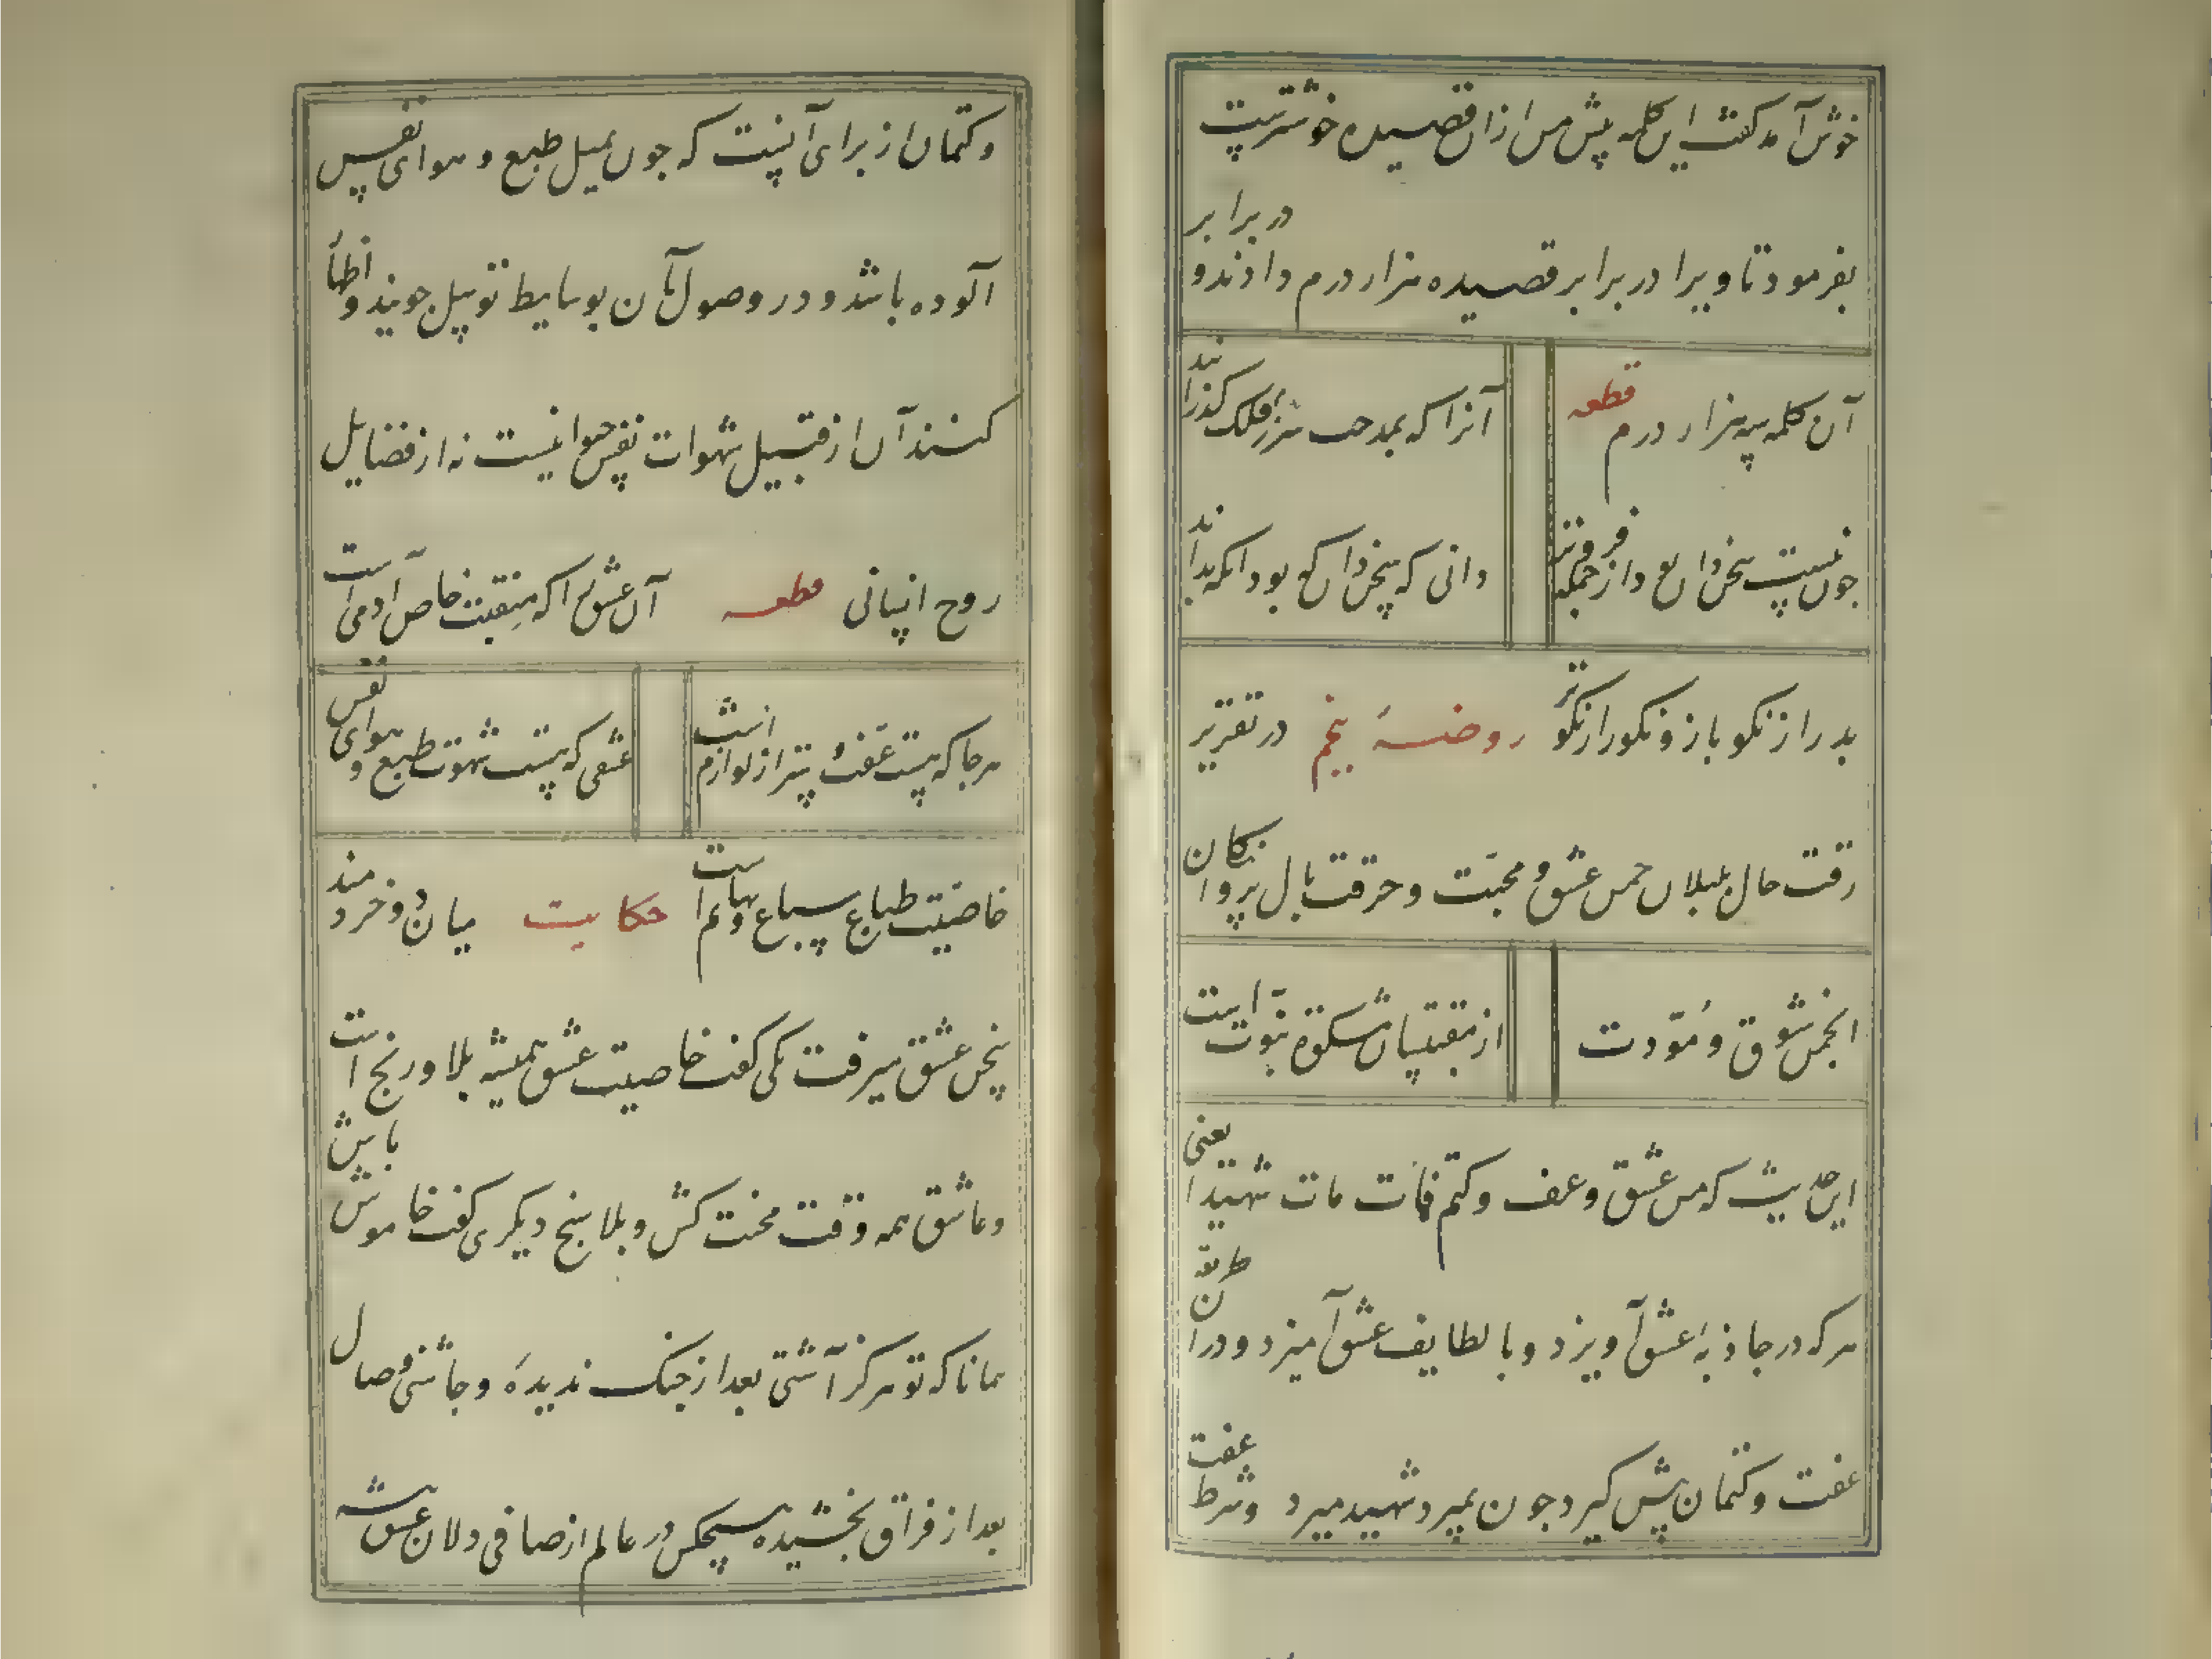 خوش آمد گفت این کلمه پیش من ازان قصیده خوشترست
بفرمود تا ویرا در برابر قصیده هزار درم دادند و در برابر
آن کلمه سه هزار درم قطعه آنرا که بمدحت سر از فلک گذراند
چون نیست سخن دان بود از جمله فروتر دانی که سخن دان که بود آنکه بداند
بد را ز نکو باز و نکو را ز نکوتر روضهٔ پنجم در تقریر
رقت حال بلبلان چمن عشق و محبّت و حرقت بال پروانگان
انجمن شوق و مودّت از مقتبسان مشکوة نبوّت است
این حدیث که من عشق و عف و کتم فمات مات شهیدا یعنی
هر که در جاذبهٔ عشق آویزد و با لطایف عشق آمیزد و در آن طریقه
عفت و کتمان پیش گیرد چون بمیرد شهید میرد و شرط عفت
و کتمان از برای آنست که چون بمیل طبع و هوای نفس
آلوده باشد و در وصول بآن بوسایط توسل جویند و اظها
کنند آن از قبیل شهوات نفس حیوانیست نه از فضایل
روح انسانی قطعه آن عشق را که منقبت خاص آدمی است
هر جا که هست عفت و ستر از لوازم است عشقی که هست شهوت طبع و هوای نفس
خاصیت طباع سباع و بهایم است حکایت میان دو خردمند
سخن عشق میرفت یکی گفت خاصیت عشق همیشه بلا و رنج است
و عاشق همه وقت محنت کش و بلا سنج دیگری گفت خاموش باش
همانا که تو هرگز آشتی بعد از جنگ ندیدهٔ و چاشنی وصال
بعد از فراق نچشیده هیچکس در عالم از صافی دلان عشق پیشه